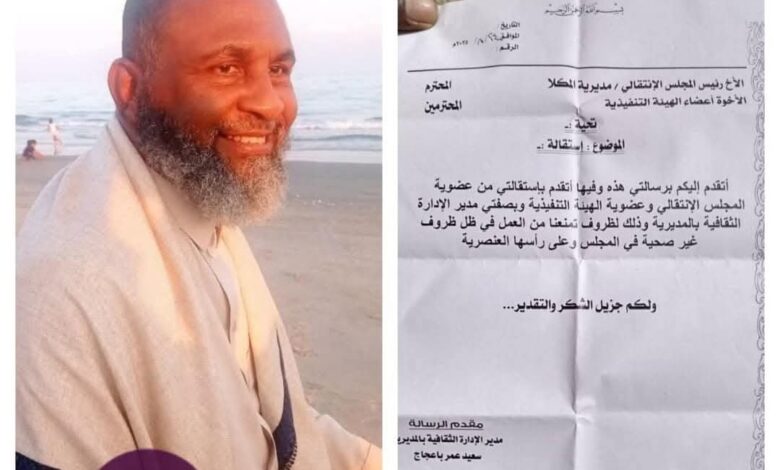 بسم الله الرحمن الرحيم
التاريخ:
الموافق: / / ٢٠٢٥م
الرقم:
الأخ رئيس المجلس الإنتقالي / مديرية المكلا المحترم
الأخوة أعضاء الهيئة التنفيذية المحترمين
تحية :-
الموضوع : إستقالة :-
أتقدم إليكم برسالتي هذه وفيها أتقدم بإستقالتي من عضوية
المجلس الإنتقالي وعضوية الهيئة التنفيذية وبصفتي مدير الإدارة
الثقافية بالمديرية وذلك لظروف تمنعنا من العمل في ظل ظروف
غير صحية في المجلس وعلى رأسها العنصرية
ولكم جزيل الشكر والتقدير...
مقدم الرسالة
مدير الإدارة الثقافية بالمديرية
سعيد عمر باعجاج